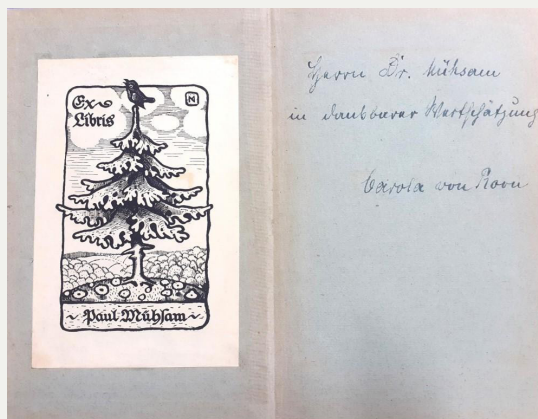 Ex
Libris
N
~ Paul Mühsam ~
Herrn Dr. Mühsam
in dankbarer Wertschätzung
Carola von Roon